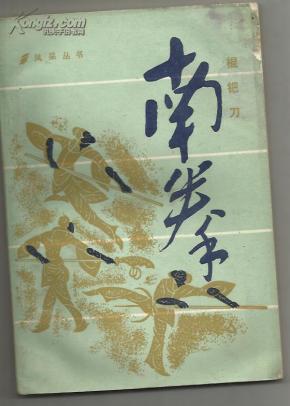 Kongfz.com
孔夫子旧书网
风采丛书
南拳
棍钯刀